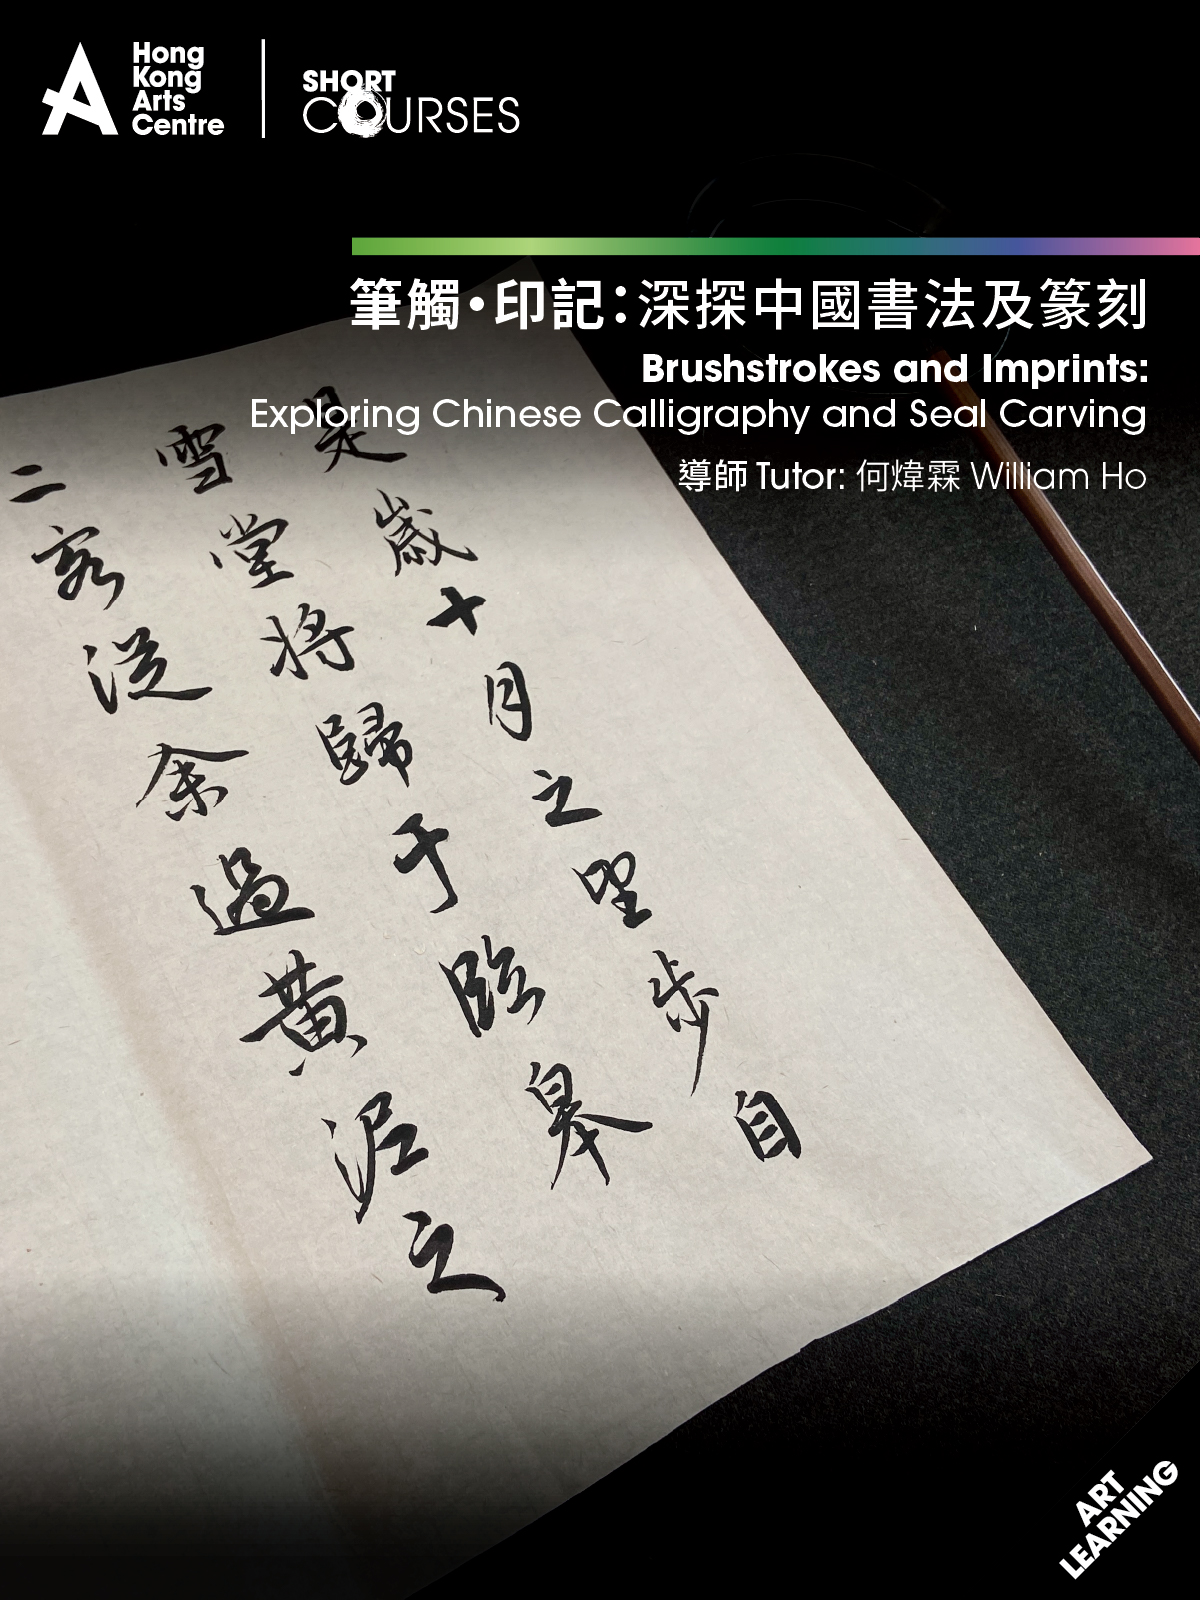 Hong
Kong
Arts
Centre
SHORT
COURSES
筆觸•印記：深探中國書法及篆刻
Brushstrokes and Imprints:
Exploring Chinese Calligraphy and Seal Carving
導師 Tutor: 何煒霖 William Ho
是歲十月之望步自
雪堂將歸于臨皋
二客從余過黃泥之
ART
LEARNING